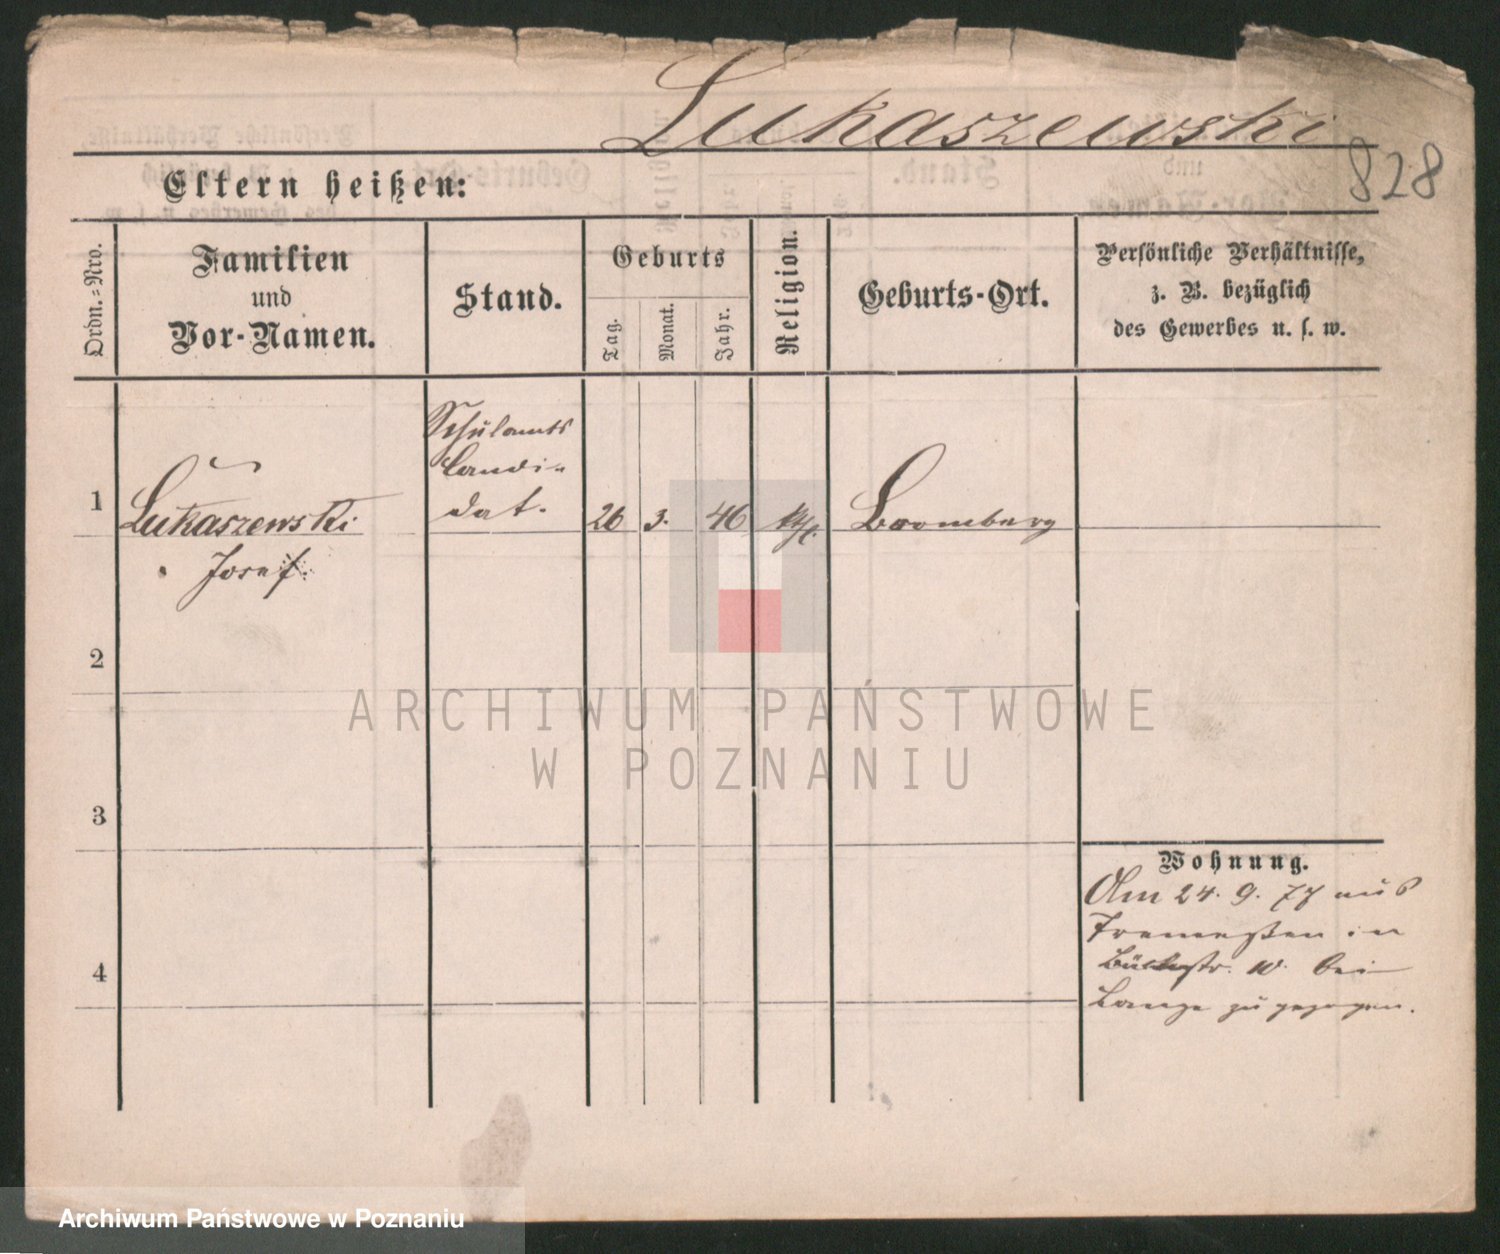 Lukaszewski
828
Eltern heißen:
Ordn.=Nro.
Familien
und
Vor-Namen.
Stand.
Geburts
Tag.
Monat.
Jahr.
Religion.
Geburts-Ort.
Persönliche Verhältnisse,
z. B. bezüglich
des Gewerbes u. s. w.
1
Lukaszewski
Josef.
Schulamts
Candi-
dat.
26
3.
46
kth.
Bromberg
2
3
4
Wohnung.
Am 24. 9. 77 aus
Tremeßen in
10. bei
Lange zugezogen.
ARCHIWUM PAŃSTWOWE
W POZNANIU
Archiwum Państwowe w Poznaniu